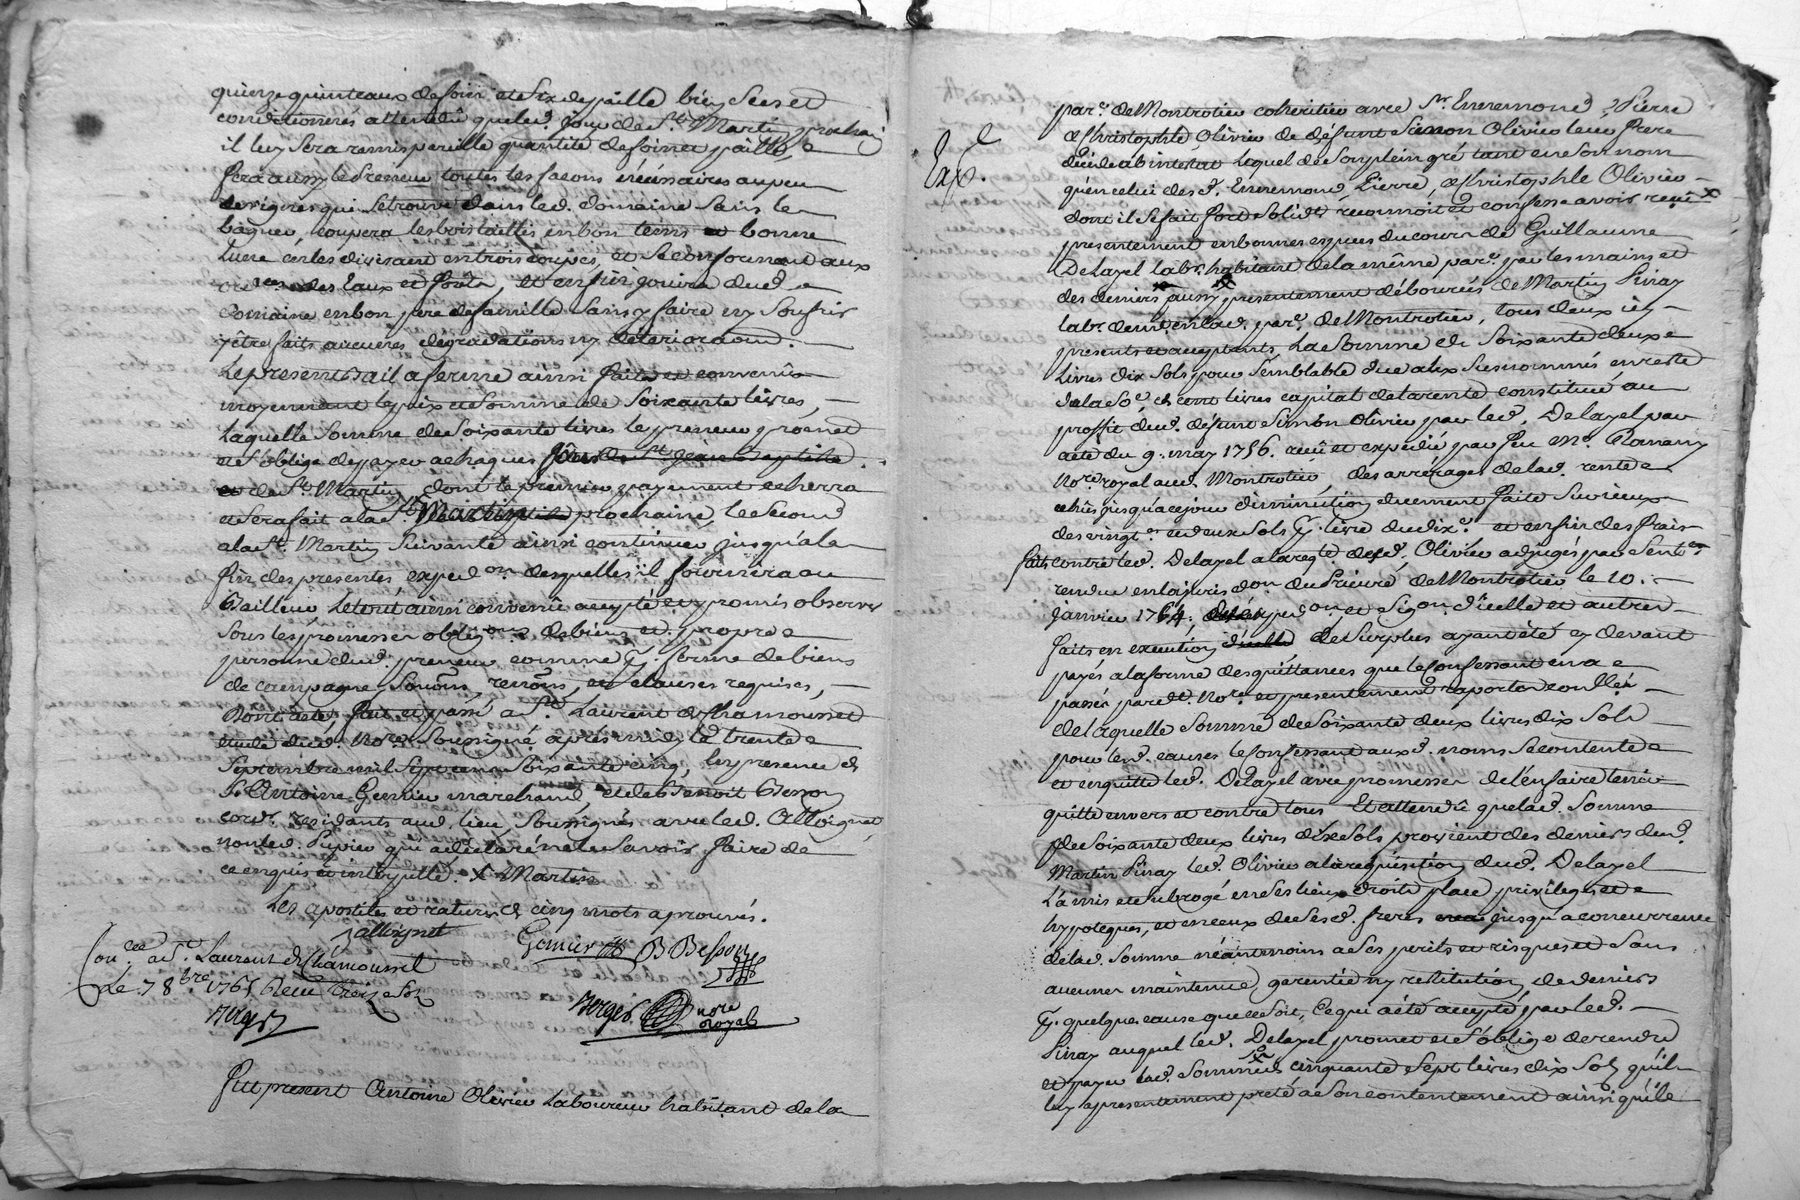 quinze quinteaux de foin et six de paille bien secs et
conditionnés attendu que led. jour de St. Martin prochain
il luy sera remis pareille quantité de foin et paille,
fera aussy le preneur toutes les façons nécéssaires au peu
de vignes qui se trouve dans led. domaine sans le
coupera les bois taillis en bon tems et bonne
lune en les divisant en trois coupes, et se conformant aux
ordces des Eaux et forêts, et enfin jouira dud.
Domaine en bon pere de famille sans y faire ny soufrir
y être faits aucunes dégradations ny déterioraons.
Le present Bail a ferme ainsi fait et convenu
moyennant le prix et somme de soixante livres,
laquelle somme de soixante livres le preneur promet
et s'oblige de payer a chaques jours de St. jean Baptiste
et de St. Martin, dont le premier payement echerra
et sera fait a la St. Martin prochaine, le second
a la St. Martin suivante ainsi continuer jusqu'a la
fin des presentes, expedon. desquelles il fournira au
Bailleur Le tout ainsi convenû accepté et promis observer
sous les promesses obligons. de biens et propre
personne dud. preneur comme p. ferme de biens
de campagne, soumons, renons, et clauses requises,
Dont acte, fait et passé a St. Laurent de Chamousset
etude dud. Nore. soussigné après midy le trente
Septembre mil sept cens soixante cinq, En presence de
Sr. Antoine Gonnin marchand, et de Benoit Besson
cord. residants aud. lieu, soussignés avec led. Alloignet
non led. qui a déclaré ne le savoir faire de
ce enquis et interpellé. X Martin
Les apostiles et ratures de cinq mots aprouvés.
alloignet
Gonnin B Besson
Con.lée a St. Laurent de Chamousset
Le 7 8bre. 1765 Reçu treize sols
Verger
Verger nore royal
Fut present Antoine Olivier Laboureur habitant de la
Exp.é
par.e de Montrotier coheritier avec Sr. Ennemond, Pierre
& Christophle Olivier de défunt Simon Olivier leur frere
décédé abintestat lequel de son plein gré tant en son nom
qu'en celui desd. Ennemond, Pierre, & Christophle Olivier
dont il se fait fort solid.t reconnoit et confesse avoir reçu
presentement en bonnes especes du cours de Guillaume
Delayel labr. habitant de la même par.e par les mains et
des deniers aussy presentement débourcés de Martin Pinay
labr. demt. en lad. par.e de Montrotier, tous deux icy
presents et acceptants, La somme de soixante deux
livres dix sols pour semblable due aux susnommés en reste
de la so.e de cent livres capital de la rente constitué au
proffit dud. défunt Simon Olivier par led. Delayel par
acte du 9. may 1756. reçû et expedié par feu Me.
Nore. royal aud. Montrotier, des arrerages de lad. rente
echûs jusqu'a ce jour diminution duement faite
des vingt.es et deux sols p. livre du dix.e et enfin des frais
faits contre led. Delayel a la reqte. desd. Olivier adjugés par Sent.ce
rendue en la jurisdon. du Prieuré de Montrotier le 10.
janvier 1764, expedon. et sigon. d'icelle et autres
faits en execution d'icelle le surplus ayant été cy devant
payés a la forme des quittances que le confessant en a
passés par dt. Nore. et presentement raportées
de laquelle somme de soixante deux livres dix sols
pour led. causes le confessant auxd. noms se contente
et en quitte led. Delayel avec promesses de l'en faire tenir
quitte envers et contre tous Et attendû que lad. somme
de soixante deux livres dix sols provient des deniers dud.
Martin Pinay led. Olivier a la requisition dud. Delayel
l'a mis et subrogé en ses lieu droits place privileges et
hypoteques, et en ceux de sesd. freres jusqu'a concurrence
de lad. somme néantmoins a ses perils et risques et sans
aucunes maintenue, garentie ny restitution de deniers
p. quelque cause que ce soit, Ce qui a été accepté par led.
Pinay auquel led. Delayel promet et s'oblige de rendre
et payer lad. somme de cinquante sept livres dix sols qu'il
luy a presentement preté a son contentement ainsi qu'il le